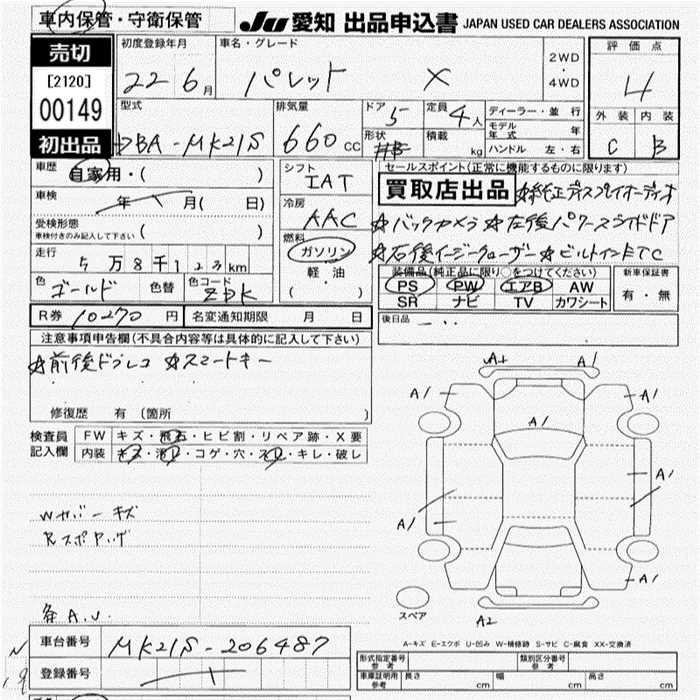 車内保管・守衛保管
JU 愛知 出品申込書 JAPAN USED CAR DEALERS ASSOCIATION
売切
[2120]
00149
初出品
初度登録年月
22 6月
車名・グレード
パレット X
2WD
・
4WD
評価点
4
外装 内装
C B
型式
DBA-MK21S
排気量
660 CC
ドア 5
定員 4人
形状
積載 kg
ディーラー・並行
モデル年式 年
ハンドル 左・右
車歴
自家用・( )
車検
年 月( 日)
受検形態
車検付きのみ記入して下さい ( )
走行
5万8千123km
色 ゴールド 色替 色コード
R券 10270 円 名変通知期限 月 日
シフト
IAT
冷房
AAC
燃料
ガソリン
軽油
( )
セールスポイント(正常に機能するものに限ります)
買取店出品 ☆純正ディスプレイオーディオ
☆バックカメラ ☆左後パワースライドドア
☆右後イージークローザー ☆ビルトインETC
装備品(純正品に限り○をつけてください)
PS PW エアB AW
SR ナビ TV カワシート
新車保証書
有・無
後日品
注意事項申告欄(不具合内容等は具体的に記入して下さい)
☆前後ドラレコ ☆スマートキー
修復歴 有 (箇所 )
検査員記入欄
FW キズ・飛石・ヒビ割・リペア跡・X要
内装 キズ・汚れ・コゲ・穴・スレ・キレ・破レ
Wカバーキズ
A.J.
A1
A1
A1
A1
A1
A1
A1
A1
A2
スペア
A-キズ E-エクボ U-凹み W-補修跡 S-サビ C-腐食 XX-交換済
車台番号 MK21S-206487
登録番号
形式指定番号 参考
類別区分番号 参考
車庫証明用 参考 長さ cm 幅 cm 高さ cm